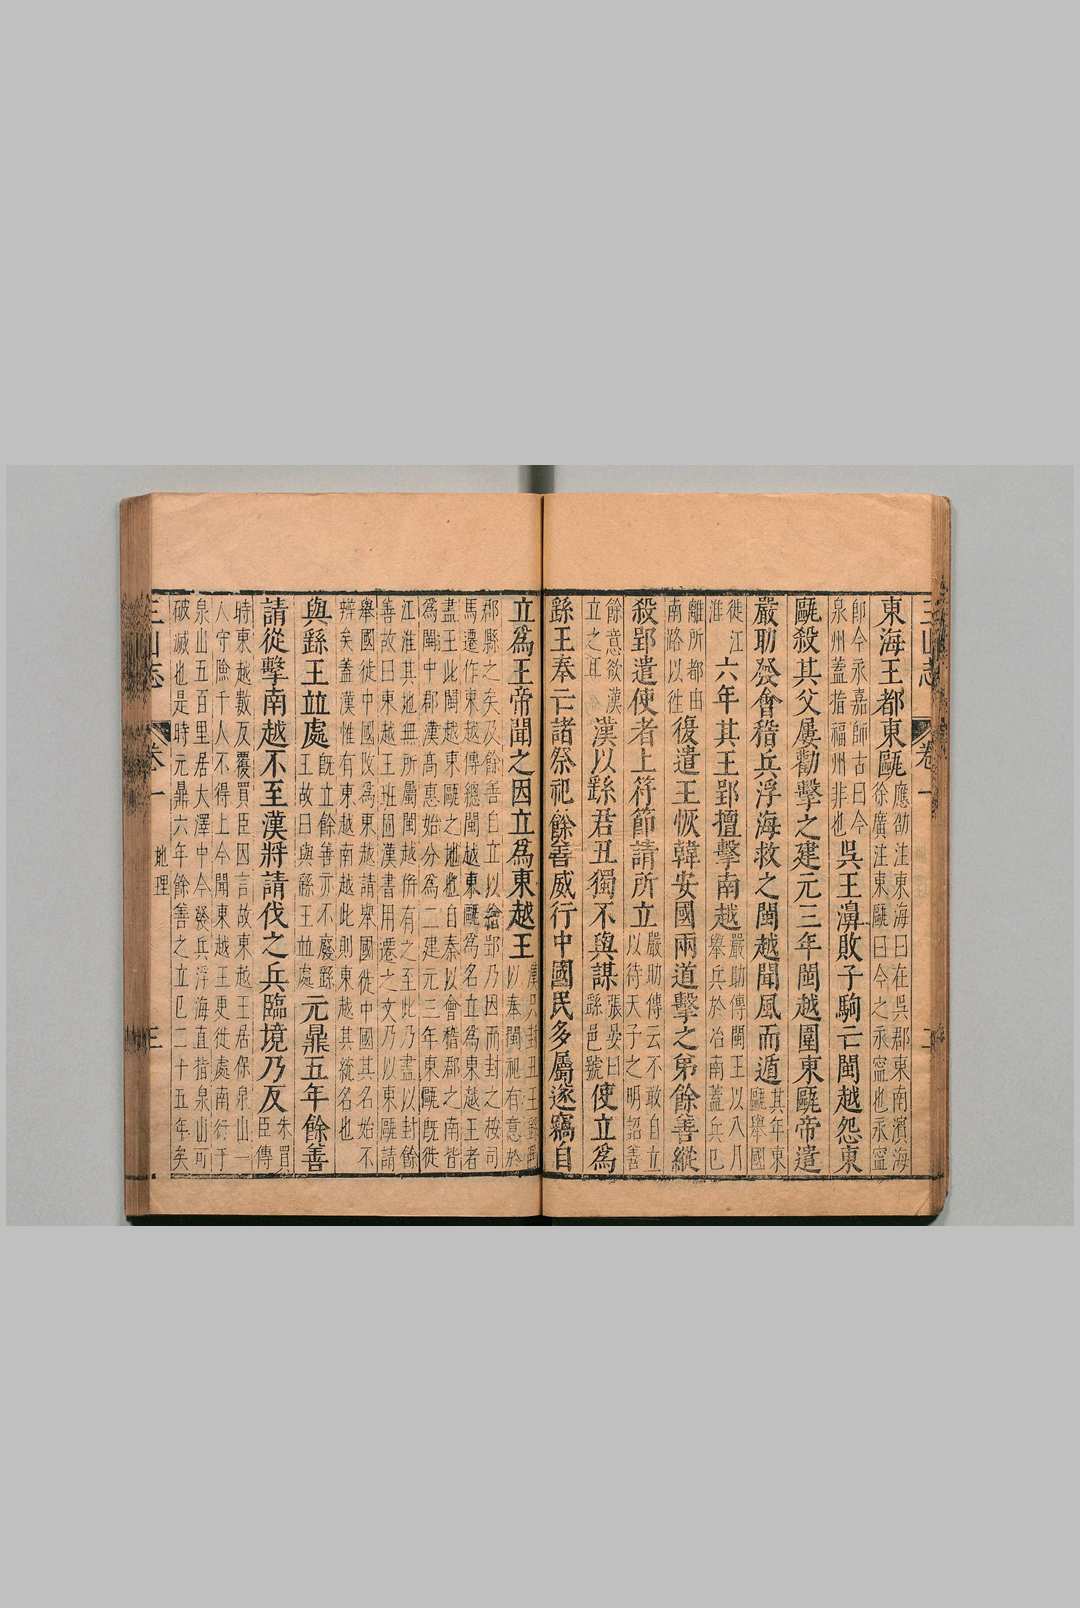 三山志　卷一　二
東海王都東甌
應劭注東海曰在吳郡東南濵海
徐廣注東甌曰今之永寧也永寧
即今永嘉師古曰今
泉州蓋指福州非也
吳王濞敗子駒亡閩越怨東
甌殺其父屢勸擊之建元三年閩越圍東甌帝遣
嚴助發會稽兵浮海救之閩越聞風而遁
其年東
甌舉國
徙江
淮
六年其王郢擅擊南越
嚴助傳閩王以八月
舉兵於冶南蓋兵已
離所都由
南路以徃
復遣王恢韓安國兩道擊之弟餘善縱
殺郢遣使者上符節請所立
嚴助傳云不敢自立
以待天子之明詔善
餘意欲漢
立之耳
漢以繇君丑獨不與謀
張晏曰
繇邑號
使立為
繇王奉亡諸祭祀餘善威行中國民多屬遂竊自
立爲王帝聞之因立爲東越王
漢只封丑王繇
以奉閩祀有意於
郡縣之矣及餘善自立以郢乃因而封之按司
馬遷作東越傳總閩越東甌為名立為東越王者
盡王此閩越東甌之地也自秦以會稽郡之南皆
為閩中郡漢髙惠始分為二建元三年東甌旣徙
江淮其地無所屬閩越併有之至此乃盡以封餘
善故曰東越王班固漢書用遷之文乃以東甌請
舉國徙中國攺為東越請舉國徙中國其名始不
辨矣蓋漢惟有東越南越此則東越其緫名也
與繇王並處
旣立餘善亦不廢繇
王故曰與繇王並處
元鼎五年餘善
請從擊南越不至漢將請伐之兵臨境乃反
朱買
臣傳
時東越數反覆買臣因言故東越王居保泉山一
人守險千人不得上今聞東越王更徙處南行于
泉山五百里居大澤中今發兵浮海直指泉山可
破滅也是時元鼎六年餘善之立已二十五年矣
三山志　卷一　地理　三